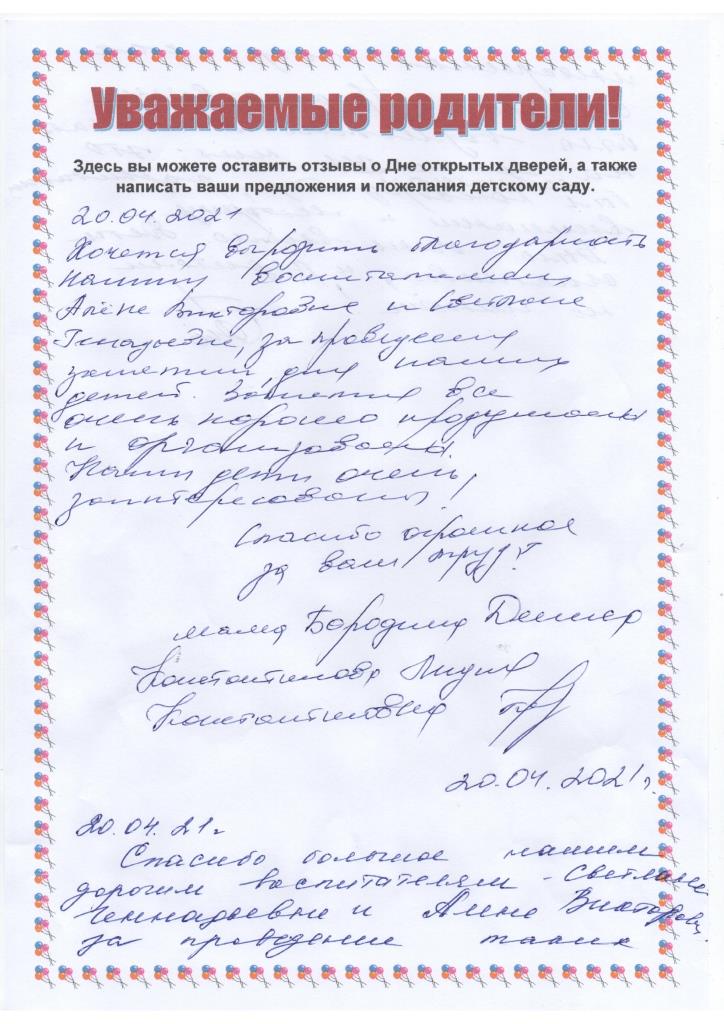 Уважаемые родители!
Здесь вы можете оставить отзывы о Дне открытых дверей, а также
написать ваши предложения и пожелания детскому саду.
20.04.2021
Хочется выразить благодарность
нашим воспитателям
Алене Викторовне и Светлане
Генадьевне, за проведения
занятий для наших
детей. Занятия все
очень хорошо продуманы
и организованы.
Наши дети очень
заинтересованы!
Спасибо огромное
за ваш труд!
мама Бородина Дениса
Константинова Лидия
Константиновна
20.04.2021г.
20.04.21г
Спасибо большое нашим
дорогим воспитателям - Светлане
Геннадьевне и Алене Викторовн.
за проведение таких